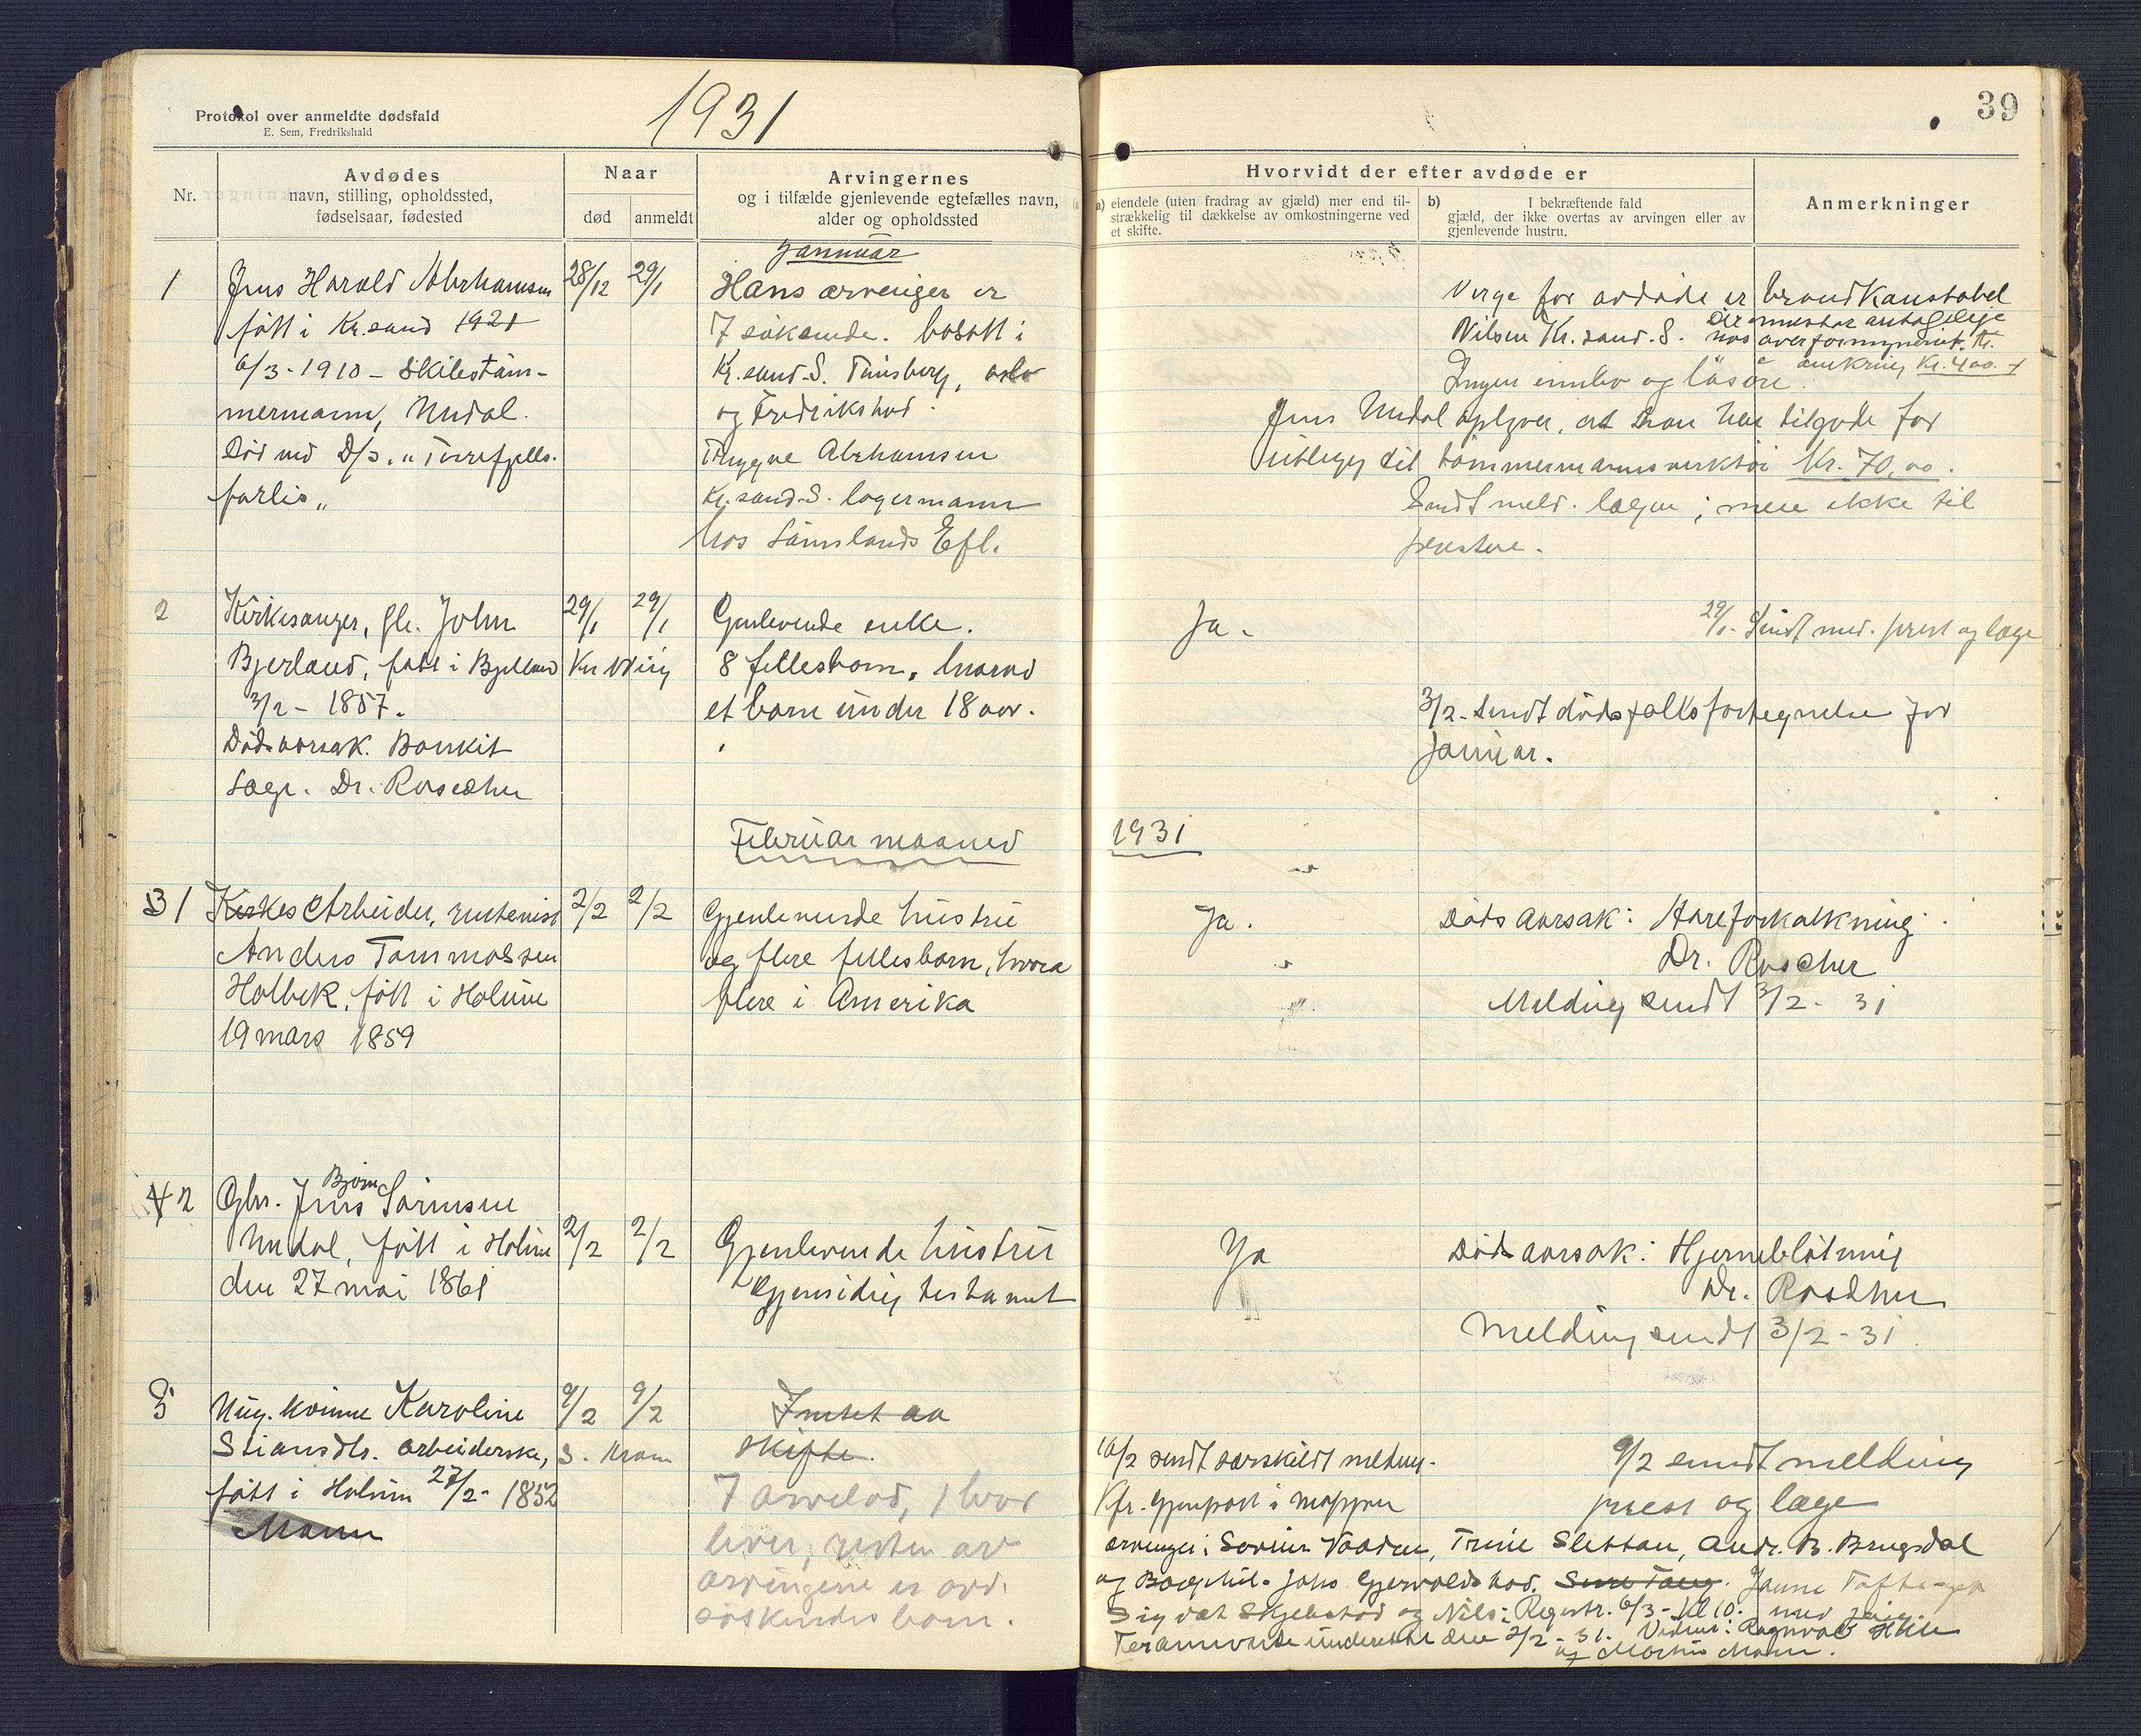 Protokol over anmeldte dødsfald
E. Sem, Fredrikshald
1931
39
Nr.
Avdødes
navn, stilling, opholdssted,
fødselsaar, fødested
Naar
død
anmeldt
Arvingernes
og i tilfælde gjenlevende egtefælles navn,
alder og opholdssted
Hvorvidt der efter avdøde er
a) eiendele (uten fradrag av gjæld) mer end til-
strækkelig til dækkelse av omkostningerne ved
et skifte.
b) I bekræftende fald
gjæld, der ikke overtas av arvingen eller av
gjenlevende hustru.
Anmerkninger
Januar
1
Jens Harald Abrhamsen
født i Kr.sand 1921
6/3-1910 - Skibstøm-
mermann, Uudal.
Død ved D/S. "Tùrrefjells-
forlis"
28/12
29/1
Hans arvinger er
7 søskende. bosatt i
Kr.sand-S. Tùnsberg, oslo
og Fredrikstad.
Trygve Abrhamsen
Kr.sand-S. lagermann
hos Sørnslands Efl.
Verge for avdøde er brandkonstabel
Nilsen Kr.sand.S.
hos overformynderiet. Kr.
omkring Kr. 400.-
Ingen innbo og løsøre.
Jens Uudal oplyser, at han har tilgode for
utlegg til tømmermannsverktøi Kr. 70,00.
Sendt meld. lægen; men ikke til
presten.
2
Kirkesanger, gbr. John
Bjerland, født i Bjelland
3/2 - 1857.
Dødsaarsak. Bronkit
Læge. Dr. Roscher
29/1
29/1
Gjenlevende enke.
8 fellesbarn, hvorav
et barn under 18 aar.
Ja.
29/1. Sendt med. prest og læge
3/2. Sendt dødsfallsfortegnelse for
januar.
Februar maaned
1931
3 1
Kirkes Arbeider, rutenist
Anders Tommassen
Holbek, født i Holume
19 mars 1859
2/2
2/2
Gjenlevende hustru
og flere fellesbarn, hvora
flere i Amerika
Ja.
Dødsaarsak: Aareforkalkning.
Dr. Roscher
Melding sendt 3/2 - 31
4 2
Gbr. Jens Bjørn Sørensen
Uudal, født i Holume
den 27 mai 1861
2/2
2/2
Gjenlevende hustru
Gjensidig testament
Ja
Dødsaarsak: Hjerneblødning
Dr. Roscher
Melding sendt 3/2 - 31.
5
Ùng. kvinne Karoline
Stiansdtr. arbeiderske,
født i Holum 27/2 - 1852
Mann
9/2
9/2
Intet aa
skifte.
7 arvelod, 1 bror
lever, resten av
arvingene er avd.
søskendes barn.
10/2 sendt særskildt melding.
Kfr. gjenpart i mappen
9/2 sendt melding
prest og læge
arvinger: Søvrin Vaaden, Trine Slettan, Andr. B. Brugsdal
og Johs Gjervoldstad.
Skjebstad og Nils: Registr. 6/3 - Kl 10.
Testamente underettet den 2/2 - 31. Vidner: Ragnvald
og Martin Mann.